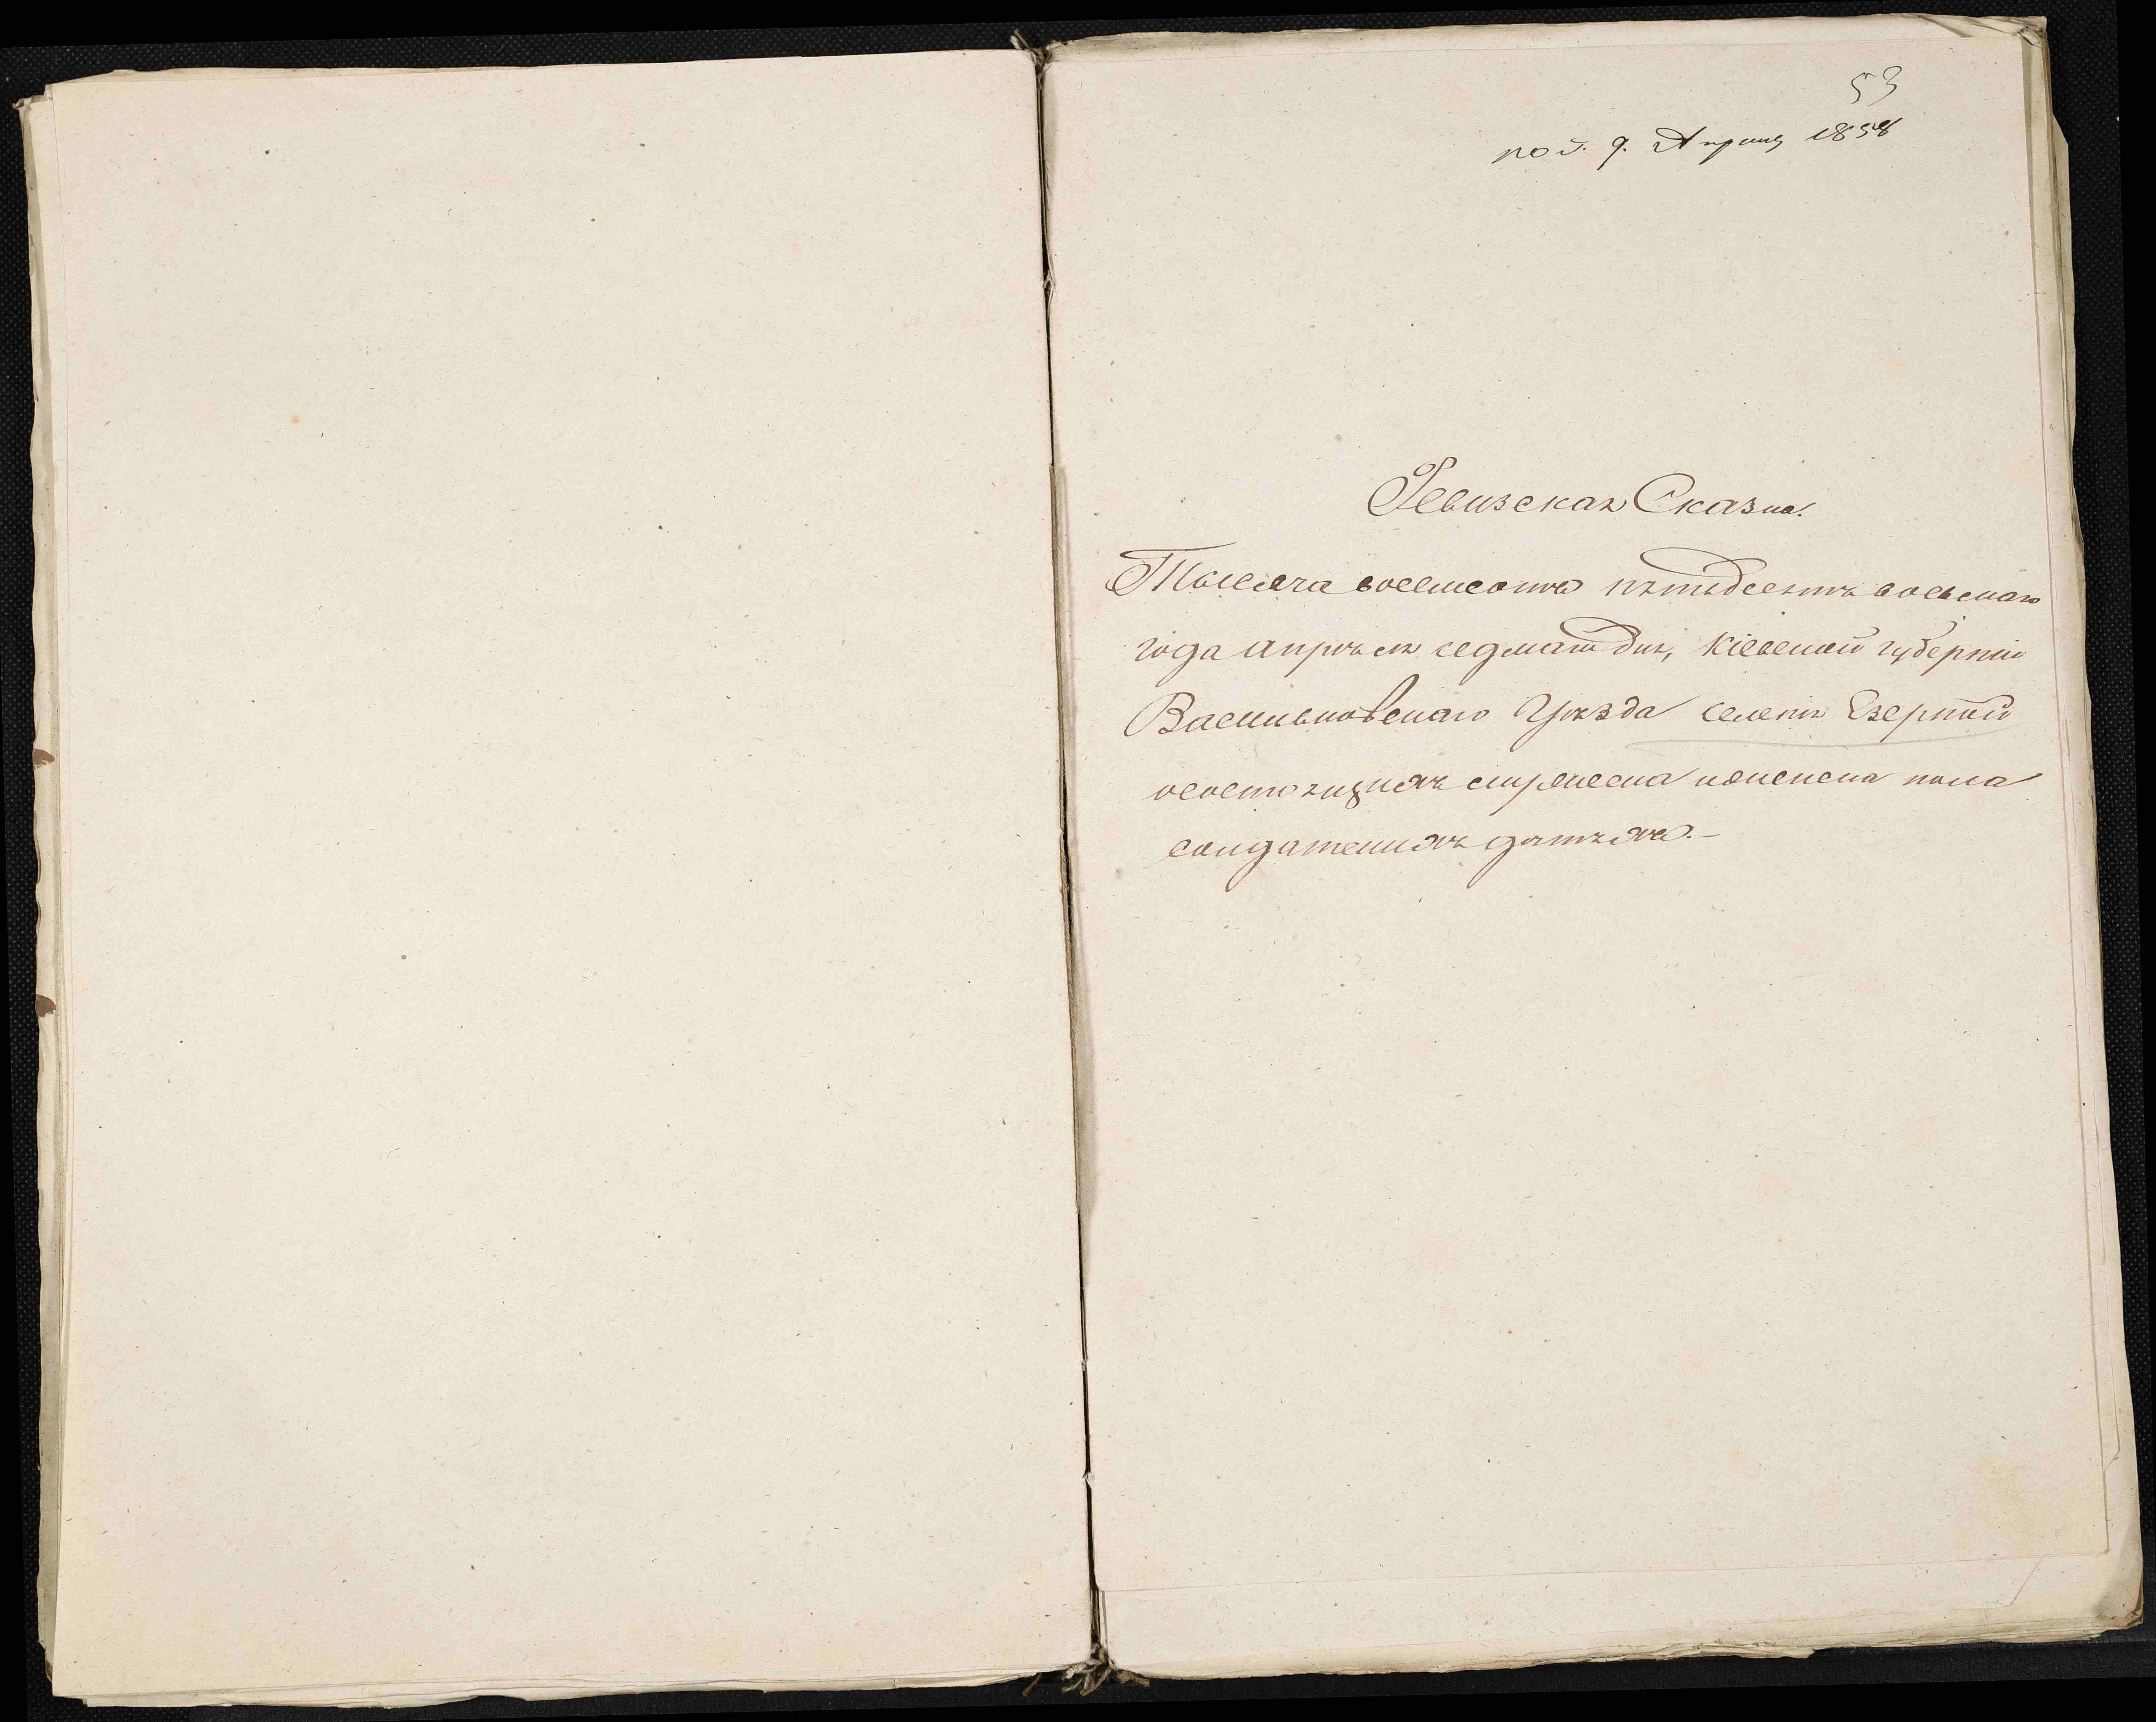 53
пол. 9. Апреля 1858
Ревизская Сказка.
Тысяча восемсотъ пятьдесятъ восьмаго
года Апрѣля седмаго дня, Кіевской губерніи
Васильковскаго Уѣзда селенія Езерной
о состоящихъ мужеска и женска пола
солдатскихъ дѣтяхъ.-